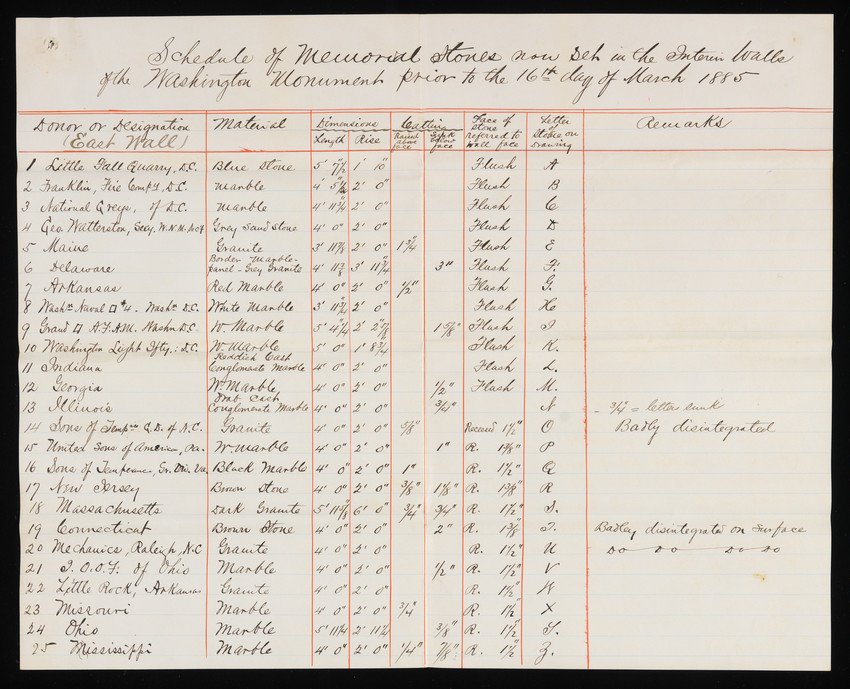 Schedule of Memorial Stones now set in the Interior Walls
of the Washington Monument prior to the 16th day of March 1885
Donor or Designation (East Wall) Material Dimensions Length Rise Cutting Raised above face Sunk below face Face of Stone referred to Wall face Letter of Stone on Drawing Remarks
1 Little Fall Quarry, D.C. Blue Stone 5' 7½" 1' 10" Flush A
2 Franklin, Fire Comp'y, D.C. Marble 4' 5½" 2' 0" Flush B
3 National Greys, of D.C. Marble 4' 11¾" 2' 0" Flush C
4 Geo. Watterston, Secy. W.N.M. Grey Sand Stone 4' 0" 2' 0" Flush D
5 Maine Granite 3' 11⅞ 2' 0" 1¾" Flush E
6 Delaware Border - Marble - panel - Grey Granite 4' 3' 11¼" 3" Flush F.
7 Arkansas Red Marble 4' 0" 2' 0" ½" Flush G.
8 Washn Naval □ #4. Washn D.C. White Marble 3' 11¾ 2' 0" Flush H
9 Grand □ A.F.A.M. Washn D.C. W. Marble 5' 4¼" 2' 1⅝" Flush I
10 Washington Light Ifty.: D.C. Wh Marble 5' 0" 1' 8¾ Flush K.
11 Indiana Reddish Cast Conglomeste Marble 4' 0" 2' 0" Flush L.
12 Georgia Wh Marble, 4' 0" 2' 0" ½" Flush M.
13 Illinois Drab Cast Conglomeste Marble 4' 0" 2' 0" ¾" N - ¾" = letter sunk
14 Sons of Tempce G.D. of N.C. Granite 4' 0" 2' 0" ⅝" Recessed 1½" O Badly disintegrated
15 United Sons of America, Pa. W Marble 4' 0" 2' 0" 1" R. P
16 Sons of Temperance, Gr. Div. Va. Black Marble 4' 0" 2' 0" 1" R. 1½" Q
17 New Jersey Brown Stone 4' 0" 2' 0" ⅜" 1⅛" R. 1⅜" R
18 Massachusetts Dark Granite 5' 6' 0" ¾" ¾" R. 1½" S.
19 Connecticut Brown Stone 4' 0" 2' 0" 2" R. 1⅜" T. Badley disintegrated on surface
20 Mechanics, Raleigh, N.C Granite 4' 0" 2' 0" R. 1½" U Do Do Do Do
21 I.O.O.F. of Ohio Marble 4' 0" 2' 0" ½" R. 1½" V
22 Little Rock, Arkansas Granite 4' 0" 2' 0" R. 1½" W
23 Missouri Marble 4' 0" 2' 0" ¾" R. 1½" X
24 Ohio Marble 5' 11¼ 2' 11¼ ⅜" R. 1½" Y.
25 Mississippi Marble 4' 0" 2' 0" ¼" ⅞" R. 1½" Z.